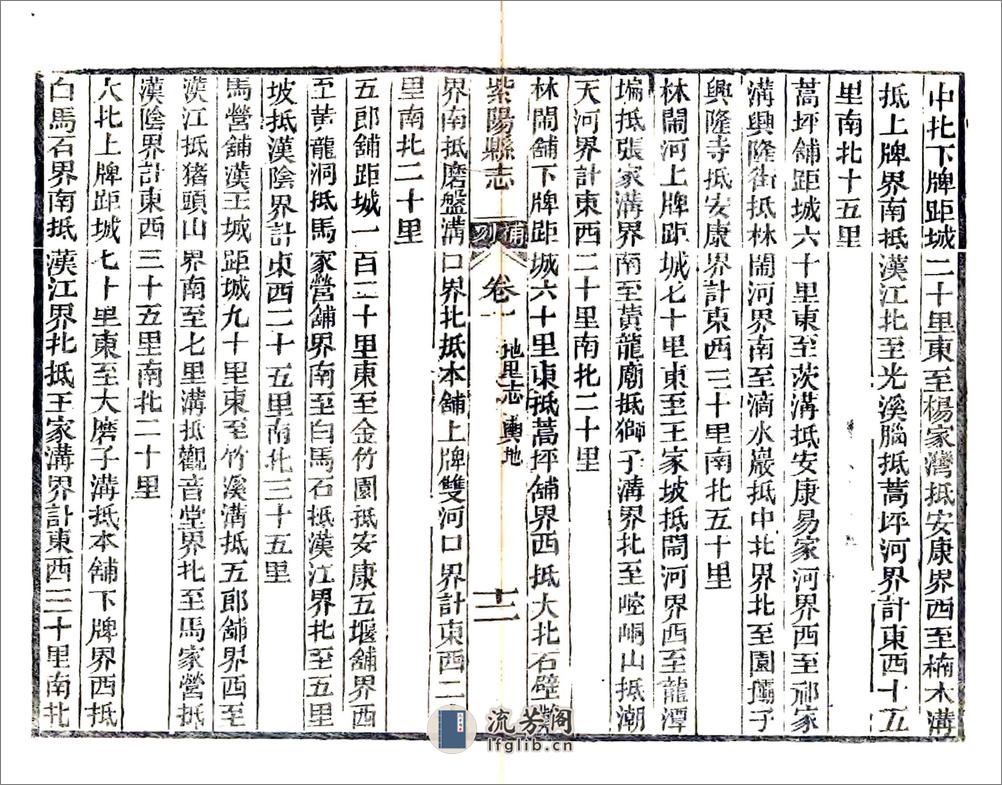 中北下牌距城二十里東至楊家灣抵安康界西至楠木溝
抵上牌界南抵漢江北至光溪腦抵蒿坪河界計東西十五
里南北十五里
蒿坪舖距城六十里東至茨溝抵安康易家河界西至祁家
溝興隆街抵林鬧河界南至滴水巖抵中北界北至園壩子
興隆寺抵安康界計東西三十里南北五十里
林鬧河上牌距城七十里東至王家坡抵鬧河界西至龍潭
塆抵張家溝界南至黃龍廟抵獅子溝界北至崆峒山抵潮
天河界計東西二十里南北二十里
林鬧舖下牌距城六十里東抵蒿坪舖界西抵大北石壁
紫陽縣志 補刻 卷一 地里志 輿地 十二
界南抵磨盤溝口界北抵本舖上牌雙河口界計東西二十
里南北二十里
五郎舖距城一百二十里東至金竹園抵安康五堰舖界西
至黃龍洞抵馬家營舖界南至白馬石抵漢江界北至五里
坡抵漢陰界計東西二十五里南北三十五里
馬營舖漢王城距城九十里東至竹溪溝抵五郎舖界西至
漢江抵猪頭山界南至七里溝抵觀音堂界北至馬家營抵
漢陰界計東西三十五里南北二十里
大北上牌距城七十里東至大磨子溝抵本舖下牌界西抵
白馬石界南抵漢江界北抵王家溝界計東西三十里南北
流芳阁
lfglib.cn